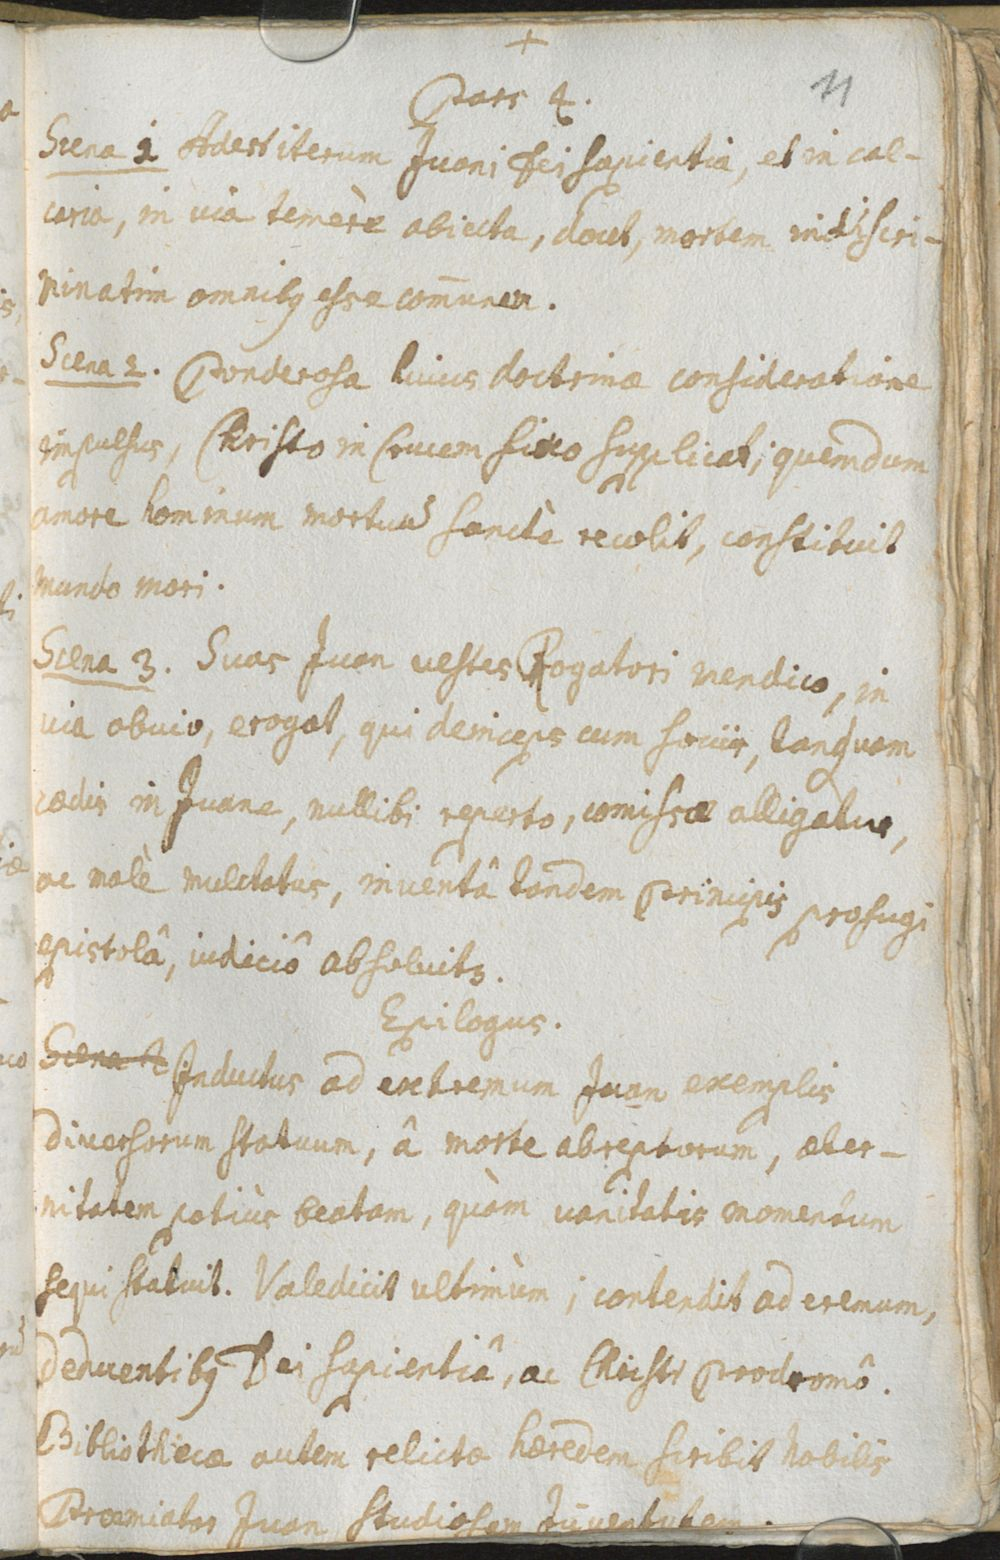 +
Pars 4.
11
Scena 1 Adest iterum Juani Dei sapientia, et in cal-
varia, in via temerè abiecta, docet, mortem indiscri-
minatim omnibꝫ esse com̄unem.
Scena 2. Ponderosa huius doctrinæ consideratione
impulsus, Christo in Crucem fixo supplicat; quem dum
amore hominum mortuū sanctè recolit, constituit
mundo mori.
Scena 3. Suas Juan vestes Rogatori mendico, in
via obvio, erogat, qui deinceps cum sociis, tanquam
cædis in Juane, nullibi reperto, comissæ alligatur,
ac malè mulctatus, inventâ tandem Principis profugi
epistolâ, iudiciô absolvitꝫ.
Epilogus.
Scena
Inductus ad extremum Juan exemplis
diversorum statuum, â morte abreptorum, æter-
nitatem potiùs beatam, quàm vanitatis momentum
sequi statuit. Valedicit ultimùm; contendit ad eremum,
deducentibꝫ Dei sapientiâ, ac Christi Prodromô.
Bibliothecæ autem relictæ hæredem scribit nobilis
Præmiator Juan studiosam Juventutem.